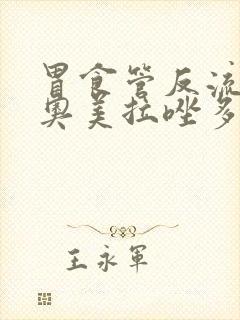 胃食管反流
奥美拉唑多
王永军